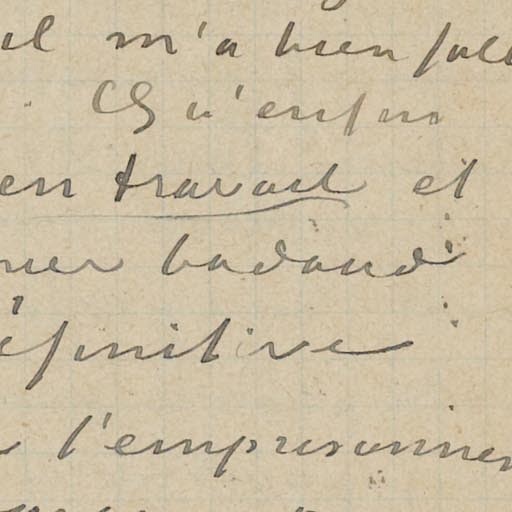 il m'a bien fall
Qu'enfin
en travail et
mer badaud
éfinitive
l'emprisonnem